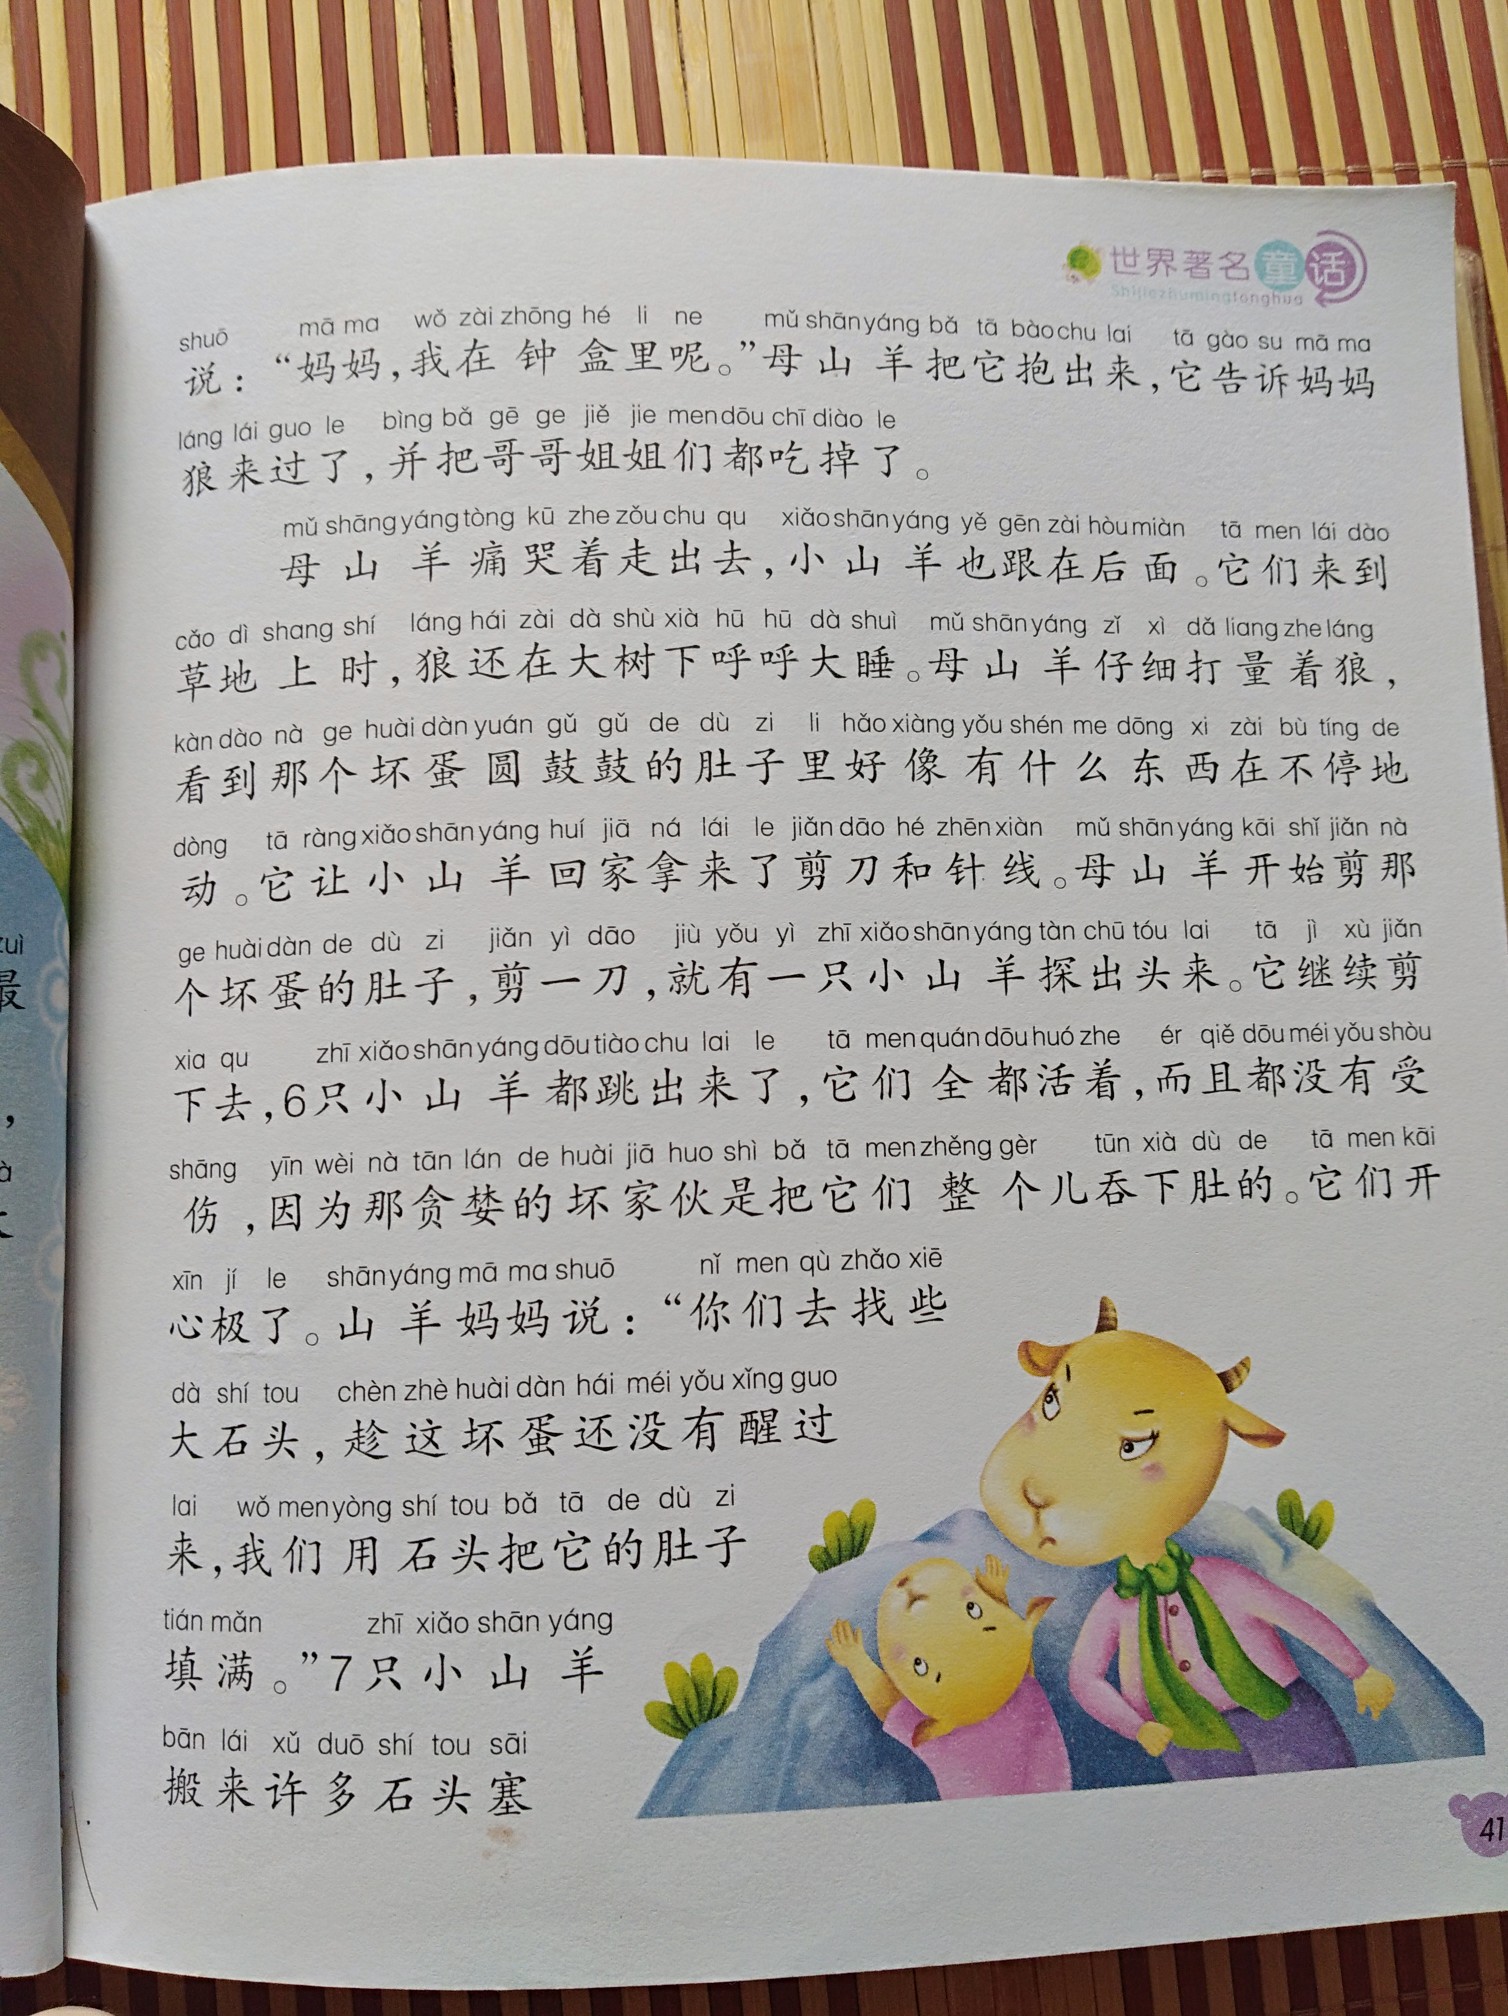 世界著名童话
Shijiezhumingtonghua
shuō mā ma wǒ zài zhōng hé li ne mǔ shān yáng bǎ tā bào chu lai tā gào su mā ma
说：“妈妈，我在钟盒里呢。”母山羊把它抱出来，它告诉妈妈
láng lái guo le bìng bǎ gē ge jiě jie men dōu chī diào le
狼来过了，并把哥哥姐姐们都吃掉了。
mǔ shāng yáng tòng kū zhe zǒu chu qu xiǎo shān yáng yě gēn zài hòu miàn tā men lái dào
母山羊痛哭着走出去，小山羊也跟在后面。它们来到
cǎo dì shang shí láng hái zài dà shù xià hū hū dà shuì mǔ shān yáng zǐ xì dǎ liang zhe láng
草地上时，狼还在大树下呼呼大睡。母山羊仔细打量着狼，
kàn dào nà ge huài dàn yuán gǔ gǔ de dù zi li hǎo xiàng yǒu shén me dōng xi zài bù tíng de
看到那个坏蛋圆鼓鼓的肚子里好像有什么东西在不停地
dòng tā ràng xiǎo shān yáng huí jiā ná lái le jiǎn dāo hé zhēn xiàn mǔ shān yáng kāi shǐ jiǎn nà
动。它让小山羊回家拿来了剪刀和针线。母山羊开始剪那
ge huài dàn de dù zi jiǎn yì dāo jiù yǒu yì zhī xiǎo shān yáng tàn chū tóu lai tā jì xù jiǎn
个坏蛋的肚子，剪一刀，就有一只小山羊探出头来。它继续剪
xia qu zhī xiǎo shān yáng dōu tiào chu lai le tā men quán dōu huó zhe ér qiě dōu méi yǒu shòu
下去，6只小山羊都跳出来了，它们全都活着，而且都没有受
shāng yīn wèi nà tān lán de huài jiā huo shì bǎ tā men zhěng gèr tūn xià dù de tā men kāi
伤，因为那贪婪的坏家伙是把它们整个儿吞下肚的。它们开
xīn jí le shān yáng mā ma shuō nǐ men qù zhǎo xiē
心极了。山羊妈妈说：“你们去找些
dà shí tou chèn zhè huài dàn hái méi yǒu xǐng guo
大石头，趁这坏蛋还没有醒过
lai wǒ men yòng shí tou bǎ tā de dù zi
来，我们用石头把它的肚子
tián mǎn zhī xiǎo shān yáng
填满。”7只小山羊
bān lái xǔ duō shí tou sāi
搬来许多石头塞
41
zuì
最